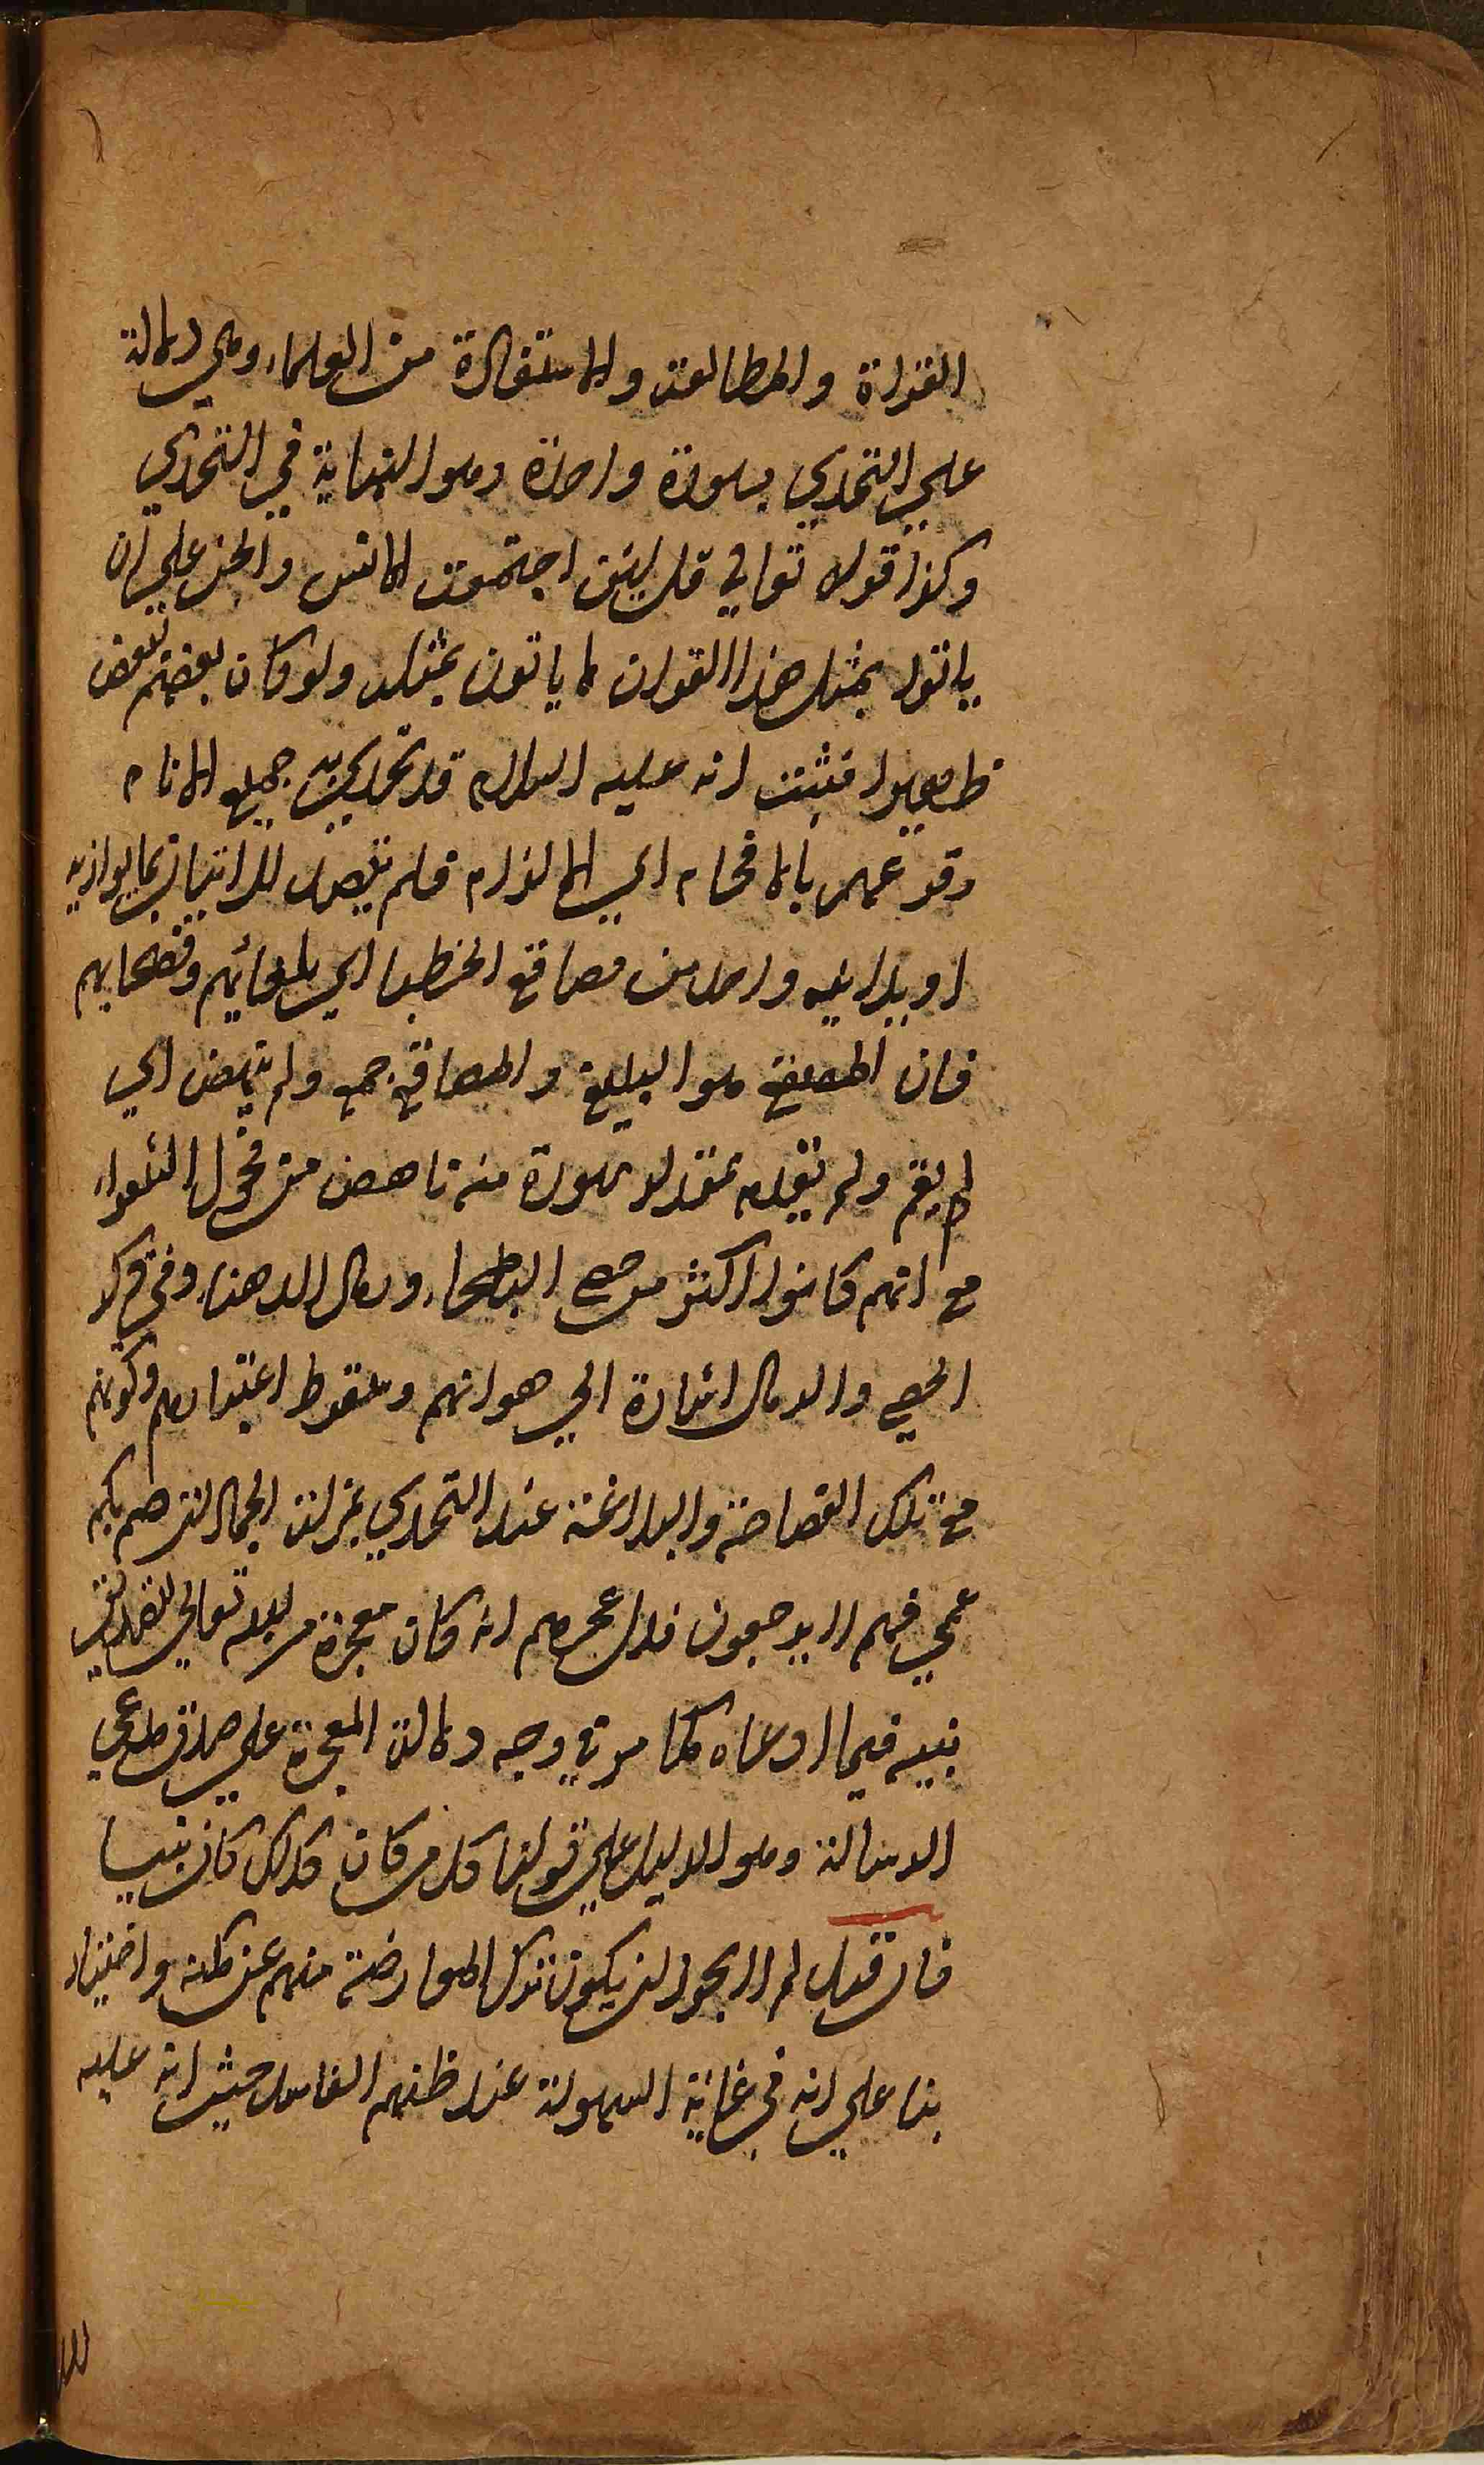 القراة والمطالعة والاستفادة من العلماء وهي دالة
علي التحدي بسورة واحدة وهو النهاية في التحدي
وكذا قوله تعالي قل لئن اجتمعت الانس والجن علي ان
ياتوا بمثل هذا القران لا ياتون بمثله ولو كان بعضهم لبعض
ظهيرا فثبت انه عليه السلام قد تحدي به جميع الانام
وقد عمهم بالافحام اي الالزام فلم يتصد للاتيان بما يوازيه
او يدانيه واحد من مصاقع الخطباء اي بلغائهم وفصحايهم
فان المصقع هو البليغ والمصاقع جمع ولم ينهض اي
لم يقم ولم يقدم بمقدار سورة منه ناهض من فحول الشعراء
مع انهم كانوا اكثر من حصي البطحاء ورمال الدهناء وفي ذكر
الحصي والرمال اشارة الي هوانهم وسقوط اعتبارهم وكونهم
مع تلك الفصاحة والبلاغة عند التحدي بمنزلة الجمادات صم بكم
عمي فهم لا يرجعون فدل عجزهم انه كان معجزة من الله تعالي لتصديق
نبيه فيما ادعاه كما مر في وجه دلالة المعجزة علي صدق مدعي
الرسالة وهو الدليل علي قولنا كل من كان كذلك كان نبيا
فان قيل لم لا يجوز ان يكون ترك المعارضة منهم عن مكنة واختيار
بنا علي انه في غاية السهولة عند ظنهم الفاسد حيث انه عليه